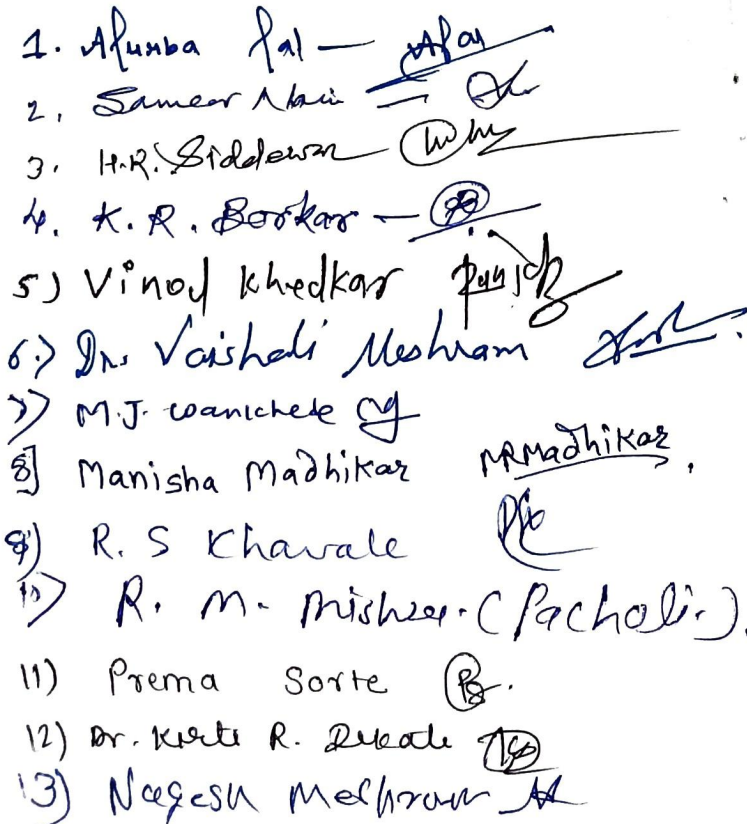 1. Apurba Pal —
2, Sameer
3. H.R. Siddewar
4. K. R. Borkar —
5) Vinod Khedkar
6.) Dr. Vaishali Meshram
7) M.J. Wanichede
8] Manisha Madhikar MRMadhikar
9) R. S Khavale
10) R. M. Mishra. (Pacholi.).
11) Prema Sorte
12) Dr. Kirti R. Dukale
13) Nagesh Meshram